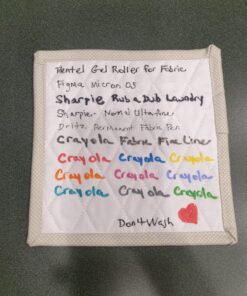 Pentel Gel Roller for Fabric
Pigma Micron 05
Sharpie Rub a Dub Laundry
Sharpie - Normal Ultrafine
Dritz Permanent Fabric Pen
Crayola Fabric Fine Line
Crayola Crayola Crayola
Crayola Crayola Crayola
Crayola Crayola Crayola
Don4Wash